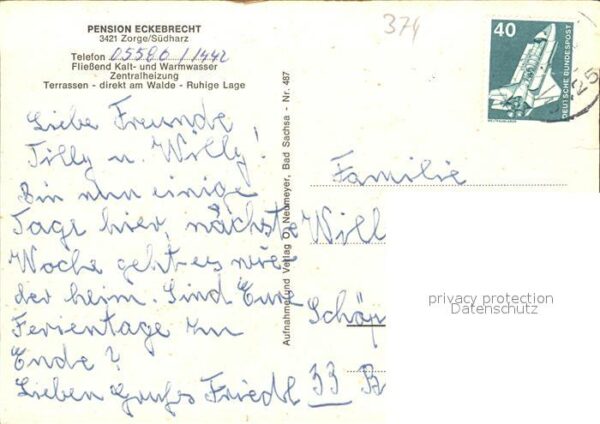 PENSION ECKEBRECHT
3421 Zorge/Südharz
Telefon 05586/1442
Fließend Kalt- und Warmwasser
Zentralheizung
Terrassen - direkt am Walde - Ruhige Lage
Liebe Freunde
Tilly u. Willy!
Bin nun einige
Tage hier, nächste
Woche geht es wie
der heim. Sind Eure
Ferientage zu
Ende?
Lieben Gruß Friedl
Aufnahme und Verlag O. Neumeyer, Bad Sachsa - Nr. 487
374
40
DEUTSCHE BUNDESPOST
Familie
Will
Schöp
33 B
privacy protection
Datenschutz